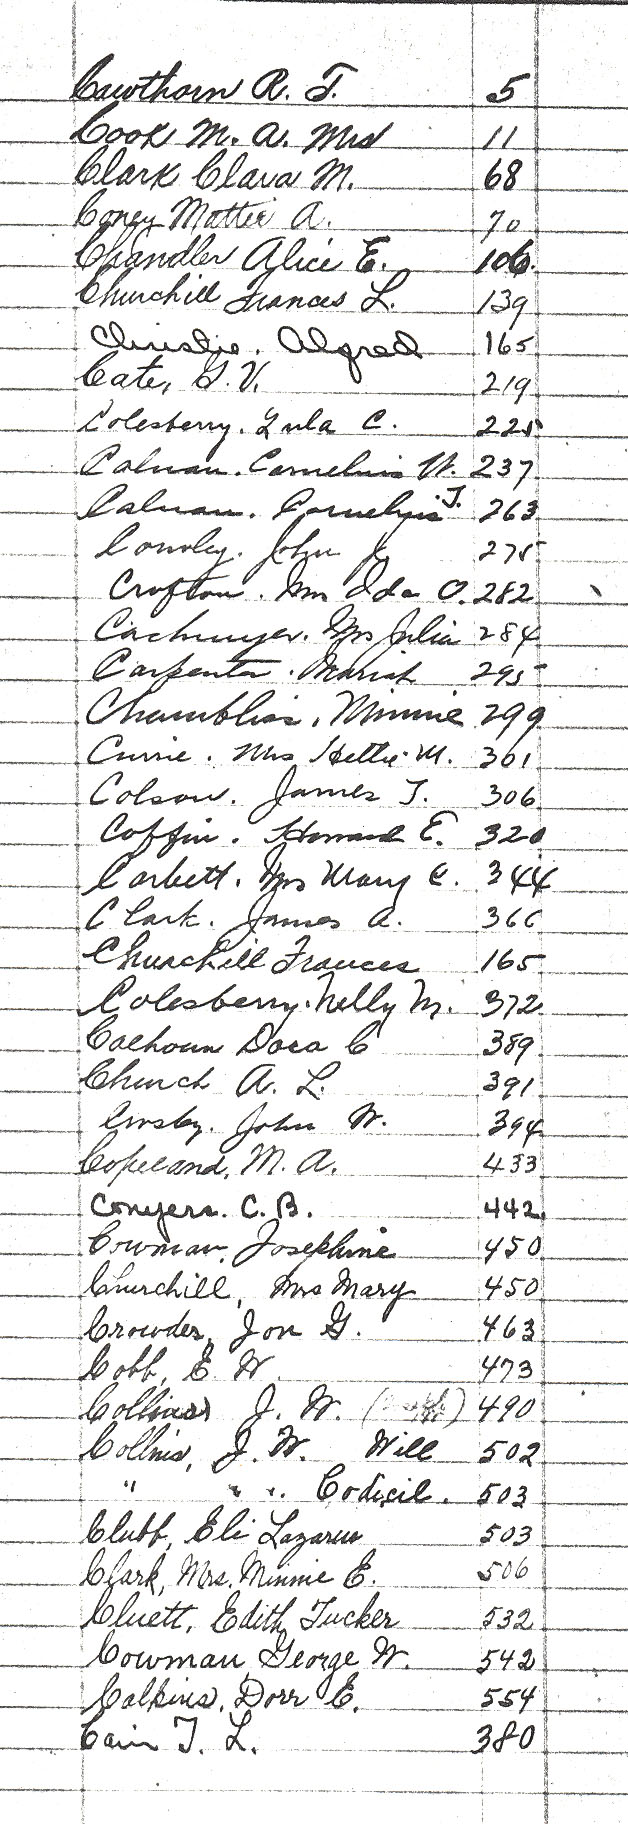 Cawthorn R. T. 5
Cook M. A. Mrs 11
Clark Clara M. 68
Coney Mattie A. 70
Chandler Alice E. 106.
Churchill Frances L. 139
Christie. Alfred 165
Cate, G. V. 219
Colesberry. Lula C. 225
Calnan. Cornelius W. 237
Calnan. Cornelius J. 263
Conoley. John 275
Crofton. Mrs Ida O. 282
Mrs Julia 284
Carpenter. Mariah 295
Chambliss, Minnie 299
Currie. Mrs Hettie M. 301
Colson. James T. 306
Coffin. Howard E. 320
Corbett. Mrs Mary E. 344
Clark. James A. 366
Churchill Frances 165
Colesberry. Nelly M. 372
Calhoun Dora C 389
Church A. L. 391
Crosby. John W. 394
Copeland, M. A. 433
Conyers. C. B. 442.
Cowman, Josephine 450
Churchill, Mrs Mary 450
Crowder, Jon G. 463
Cobb, E. W. 473
Collins J. W. 490
Collins, J. W. Will 502
" " " Codicil. 503
Clubb, Eli Lazarus 503
Clark, Mrs. Minnie E. 506
Cluett, Edith Tucker 532
Cowman George W. 542
Calkins, Dorr E. 554
Cain T. L. 380